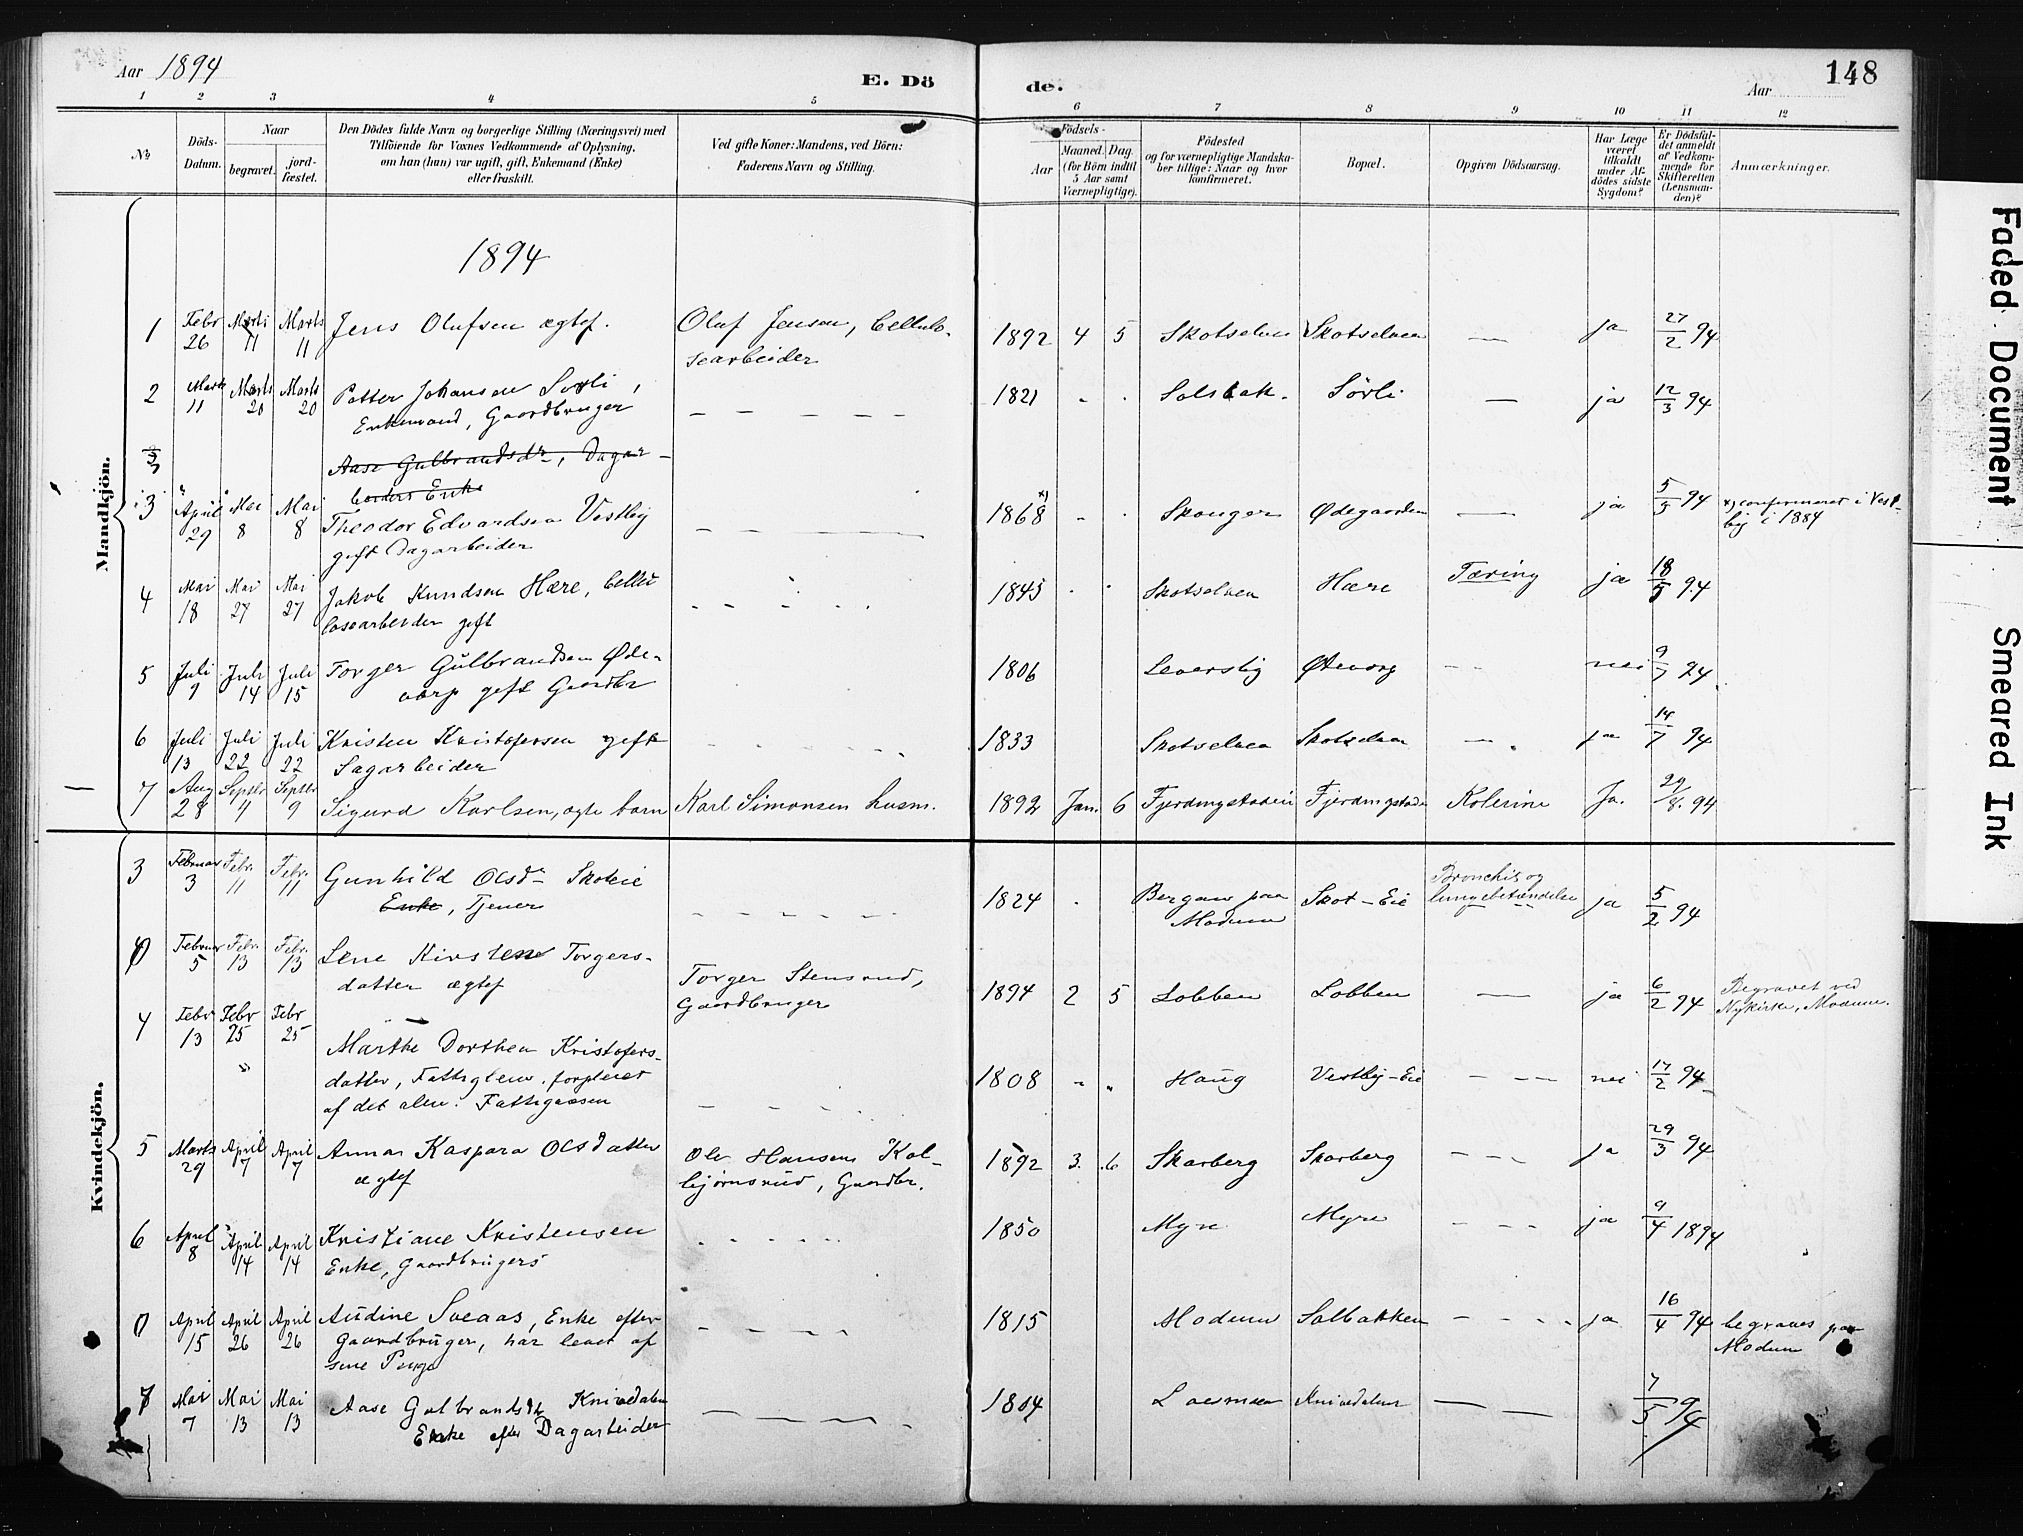 Aar 1894
E. Dö
de.
Aar
148
1 2 3 4 5 6 7 8 9 10 11 12
No
Döds-Datum.
Naar
begravet.
jord-fæstet.
Den Dödes fulde Navn og borgerlige Stilling (Næringsvei) med
Tilföiende for Voxnes Vedkommende af Oplysning,
om han (hun) var ugift, gift, Enkemand (Enke)
eller fraskilt.
Ved gifte Koner: Mandens, ved Börn:
Faderens Navn og Stilling.
Födsels-
Aar
Maaned. Dag.
(for Börn indtil
5 Aar samt
Værnepligtige).
Födested
og for værnepligtige Mandska-
ber tillige: Naar og hvor
konfirmeret.
Bopæl.
Opgiven Dödsaarsag.
Har Læge
været
tilkaldt
under Af-
dödes sidste
Sygdom?
Er Dödsfal-
det anmeldt
af Vedkom-
mende for
Skifteretten
(Lensman-
den)?
Anmærkninger.
Mandkjön.
1894
1 Febr 26 Marts 11 Marts 11 Jens Olufsen ægtef. Oluf Jensen, Cellulo-
searbeider 1892 4 5 Skotselven Skotselven — ja 27/2 94
2 Marts 11 Marts 20 Marts 20 Petter Johansen Sörli,
Enkemand, Gaardbruger — — — — — 1821 Solbak. Sörli — ja 12/3 94
Aase Gulbrandsdr, Dagar-
beiders Enke
3 April 29 Mai 8 Mai 8 Theodor Edvardsen Vestby
gift Dagarbeider 1868 x) Skouger Ødegaarden — ja 5/5 94 x) confirmeret i Vest-
by i 1884
4 Mai 18 Mai 27 Mai 27 Jakob Knudsen Hære, Cellu
losearbeider gift 1845 Skotselven Hære Tæring ja 18/5 94
5 Juli 9 Juli 14 Juli 15 Torger Gulbrandsen Øde-
vorp gift Gaardbr 1806 Leversby nei 9/7 94
6 Juli 13 Juli 22 Juli 22 Kristen Kristofersen gift
Sagarbeider 1833 Skotselven Skotselven — ja 14/7 94
7 Aug 28 Septbr 4 Septbr 9 Sigurd Karlsen, ægte barn Karl Simonsen husm. 1892 Jan. 6 Fjerdingstadeie Fjerdingstade Kolerine Ja. 29/8. 94
Kvindekjön.
3 Februar 3 Febr. 11 Febr. 11 Gunhild Olsdr Skoteie
Enke, Tjener 1824 Bergan paa
Modum Skot-Eie Bronchit og
lungebetændelse ja 5/2 94
0 Februar 5 Febr. 13 Febr. 13 Lene Kirstene Torgers-
datter ægtef Torger Stensrud,
Gaardbruger 1894 2 5 Lobben Lobben — ja 6/2 94 Begravet ved
Nykirke, Modum.
4 Febr 13 Febr 25 Febr 25 Marthe Dorthea Kristofers-
datter, Fattiglem. forpleiet
af det alm. Fattigvæsen 1808 Haug Vestby-Eie — nei 17/2 94
5 Marts 29 April 7 April 7 Anna Kaspara Olsdatter
ægtef Ole Hansen Kol-
bjørnsrud, Gaardbr. 1892 3. 6 Skarberg Skarberg — ja 29/3 94
6 April 8 April 14 April 14 Kristiane Kristensen
Enke, Gaardbrugers 1850 Myre Myre — ja 9/4 1894
0 April 15 April 26 April 26 Audine Sveaas, Enke efter
Gaardbruger, har levet af
sine Penge 1815 Modum Solbakken — ja 16/4 94 begraves paa
Modum
7 Mai 7 Mai 13 Mai 13 Aase Gulbrandsdtr Knivedalen
Enke efter Dagarbeider 1804 Knivedalen — 7/5 94
Faded Document
Smeared Ink